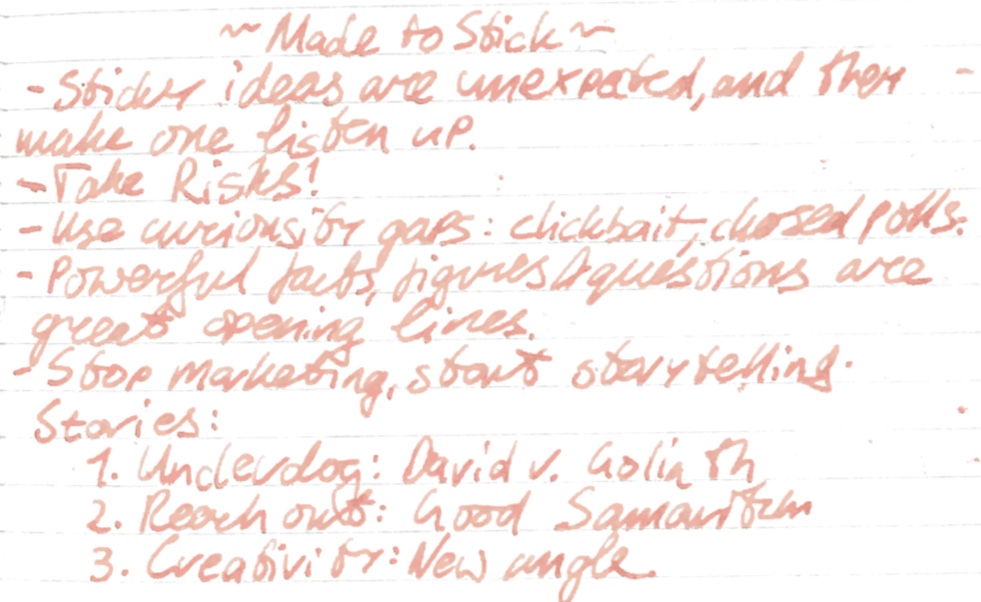 ~ Made to Stick ~
- Sticky ideas are unexpected, and they
make one listen up.
- Take Risks!
- Use curiousity gaps: clickbait, closed polls.
- Powerful facts, figures & questions are
great opening lines.
- Stop marketing, start storytelling.
Stories:
1. Underdog: David v. Goliath
2. Reach out: Good Samaritan
3. Creativity: New angle.